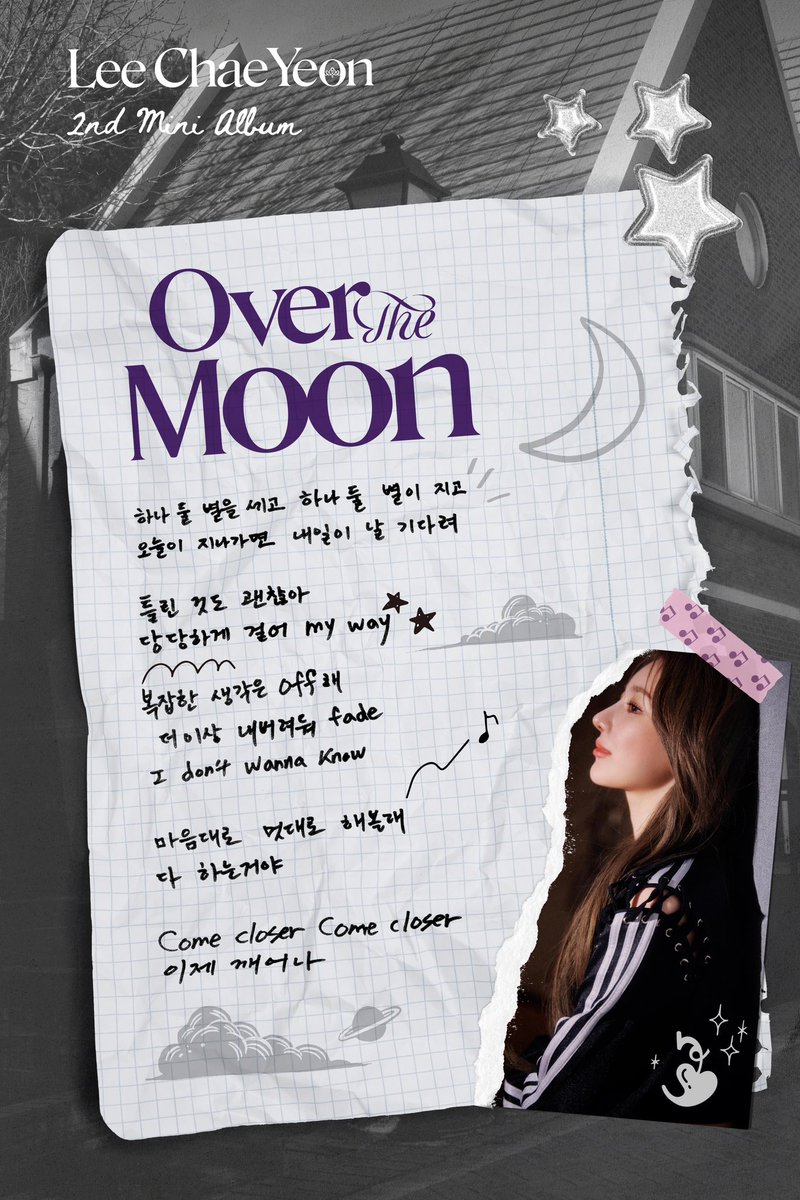 Lee ChaeYeon
2nd Mini Album
Over The
Moon
하나 둘 별을 세고 하나 둘 별이 지고
오늘이 지나가면 내일이 날 기다려
틀린 것도 괜찮아
당당하게 걸어 my way
복잡한 생각은 off 해
더 이상 내버려둬 fade
I don't wanna know
마음대로 멋대로 해볼래
다 하는거야
Come closer Come closer
이제 깨어나